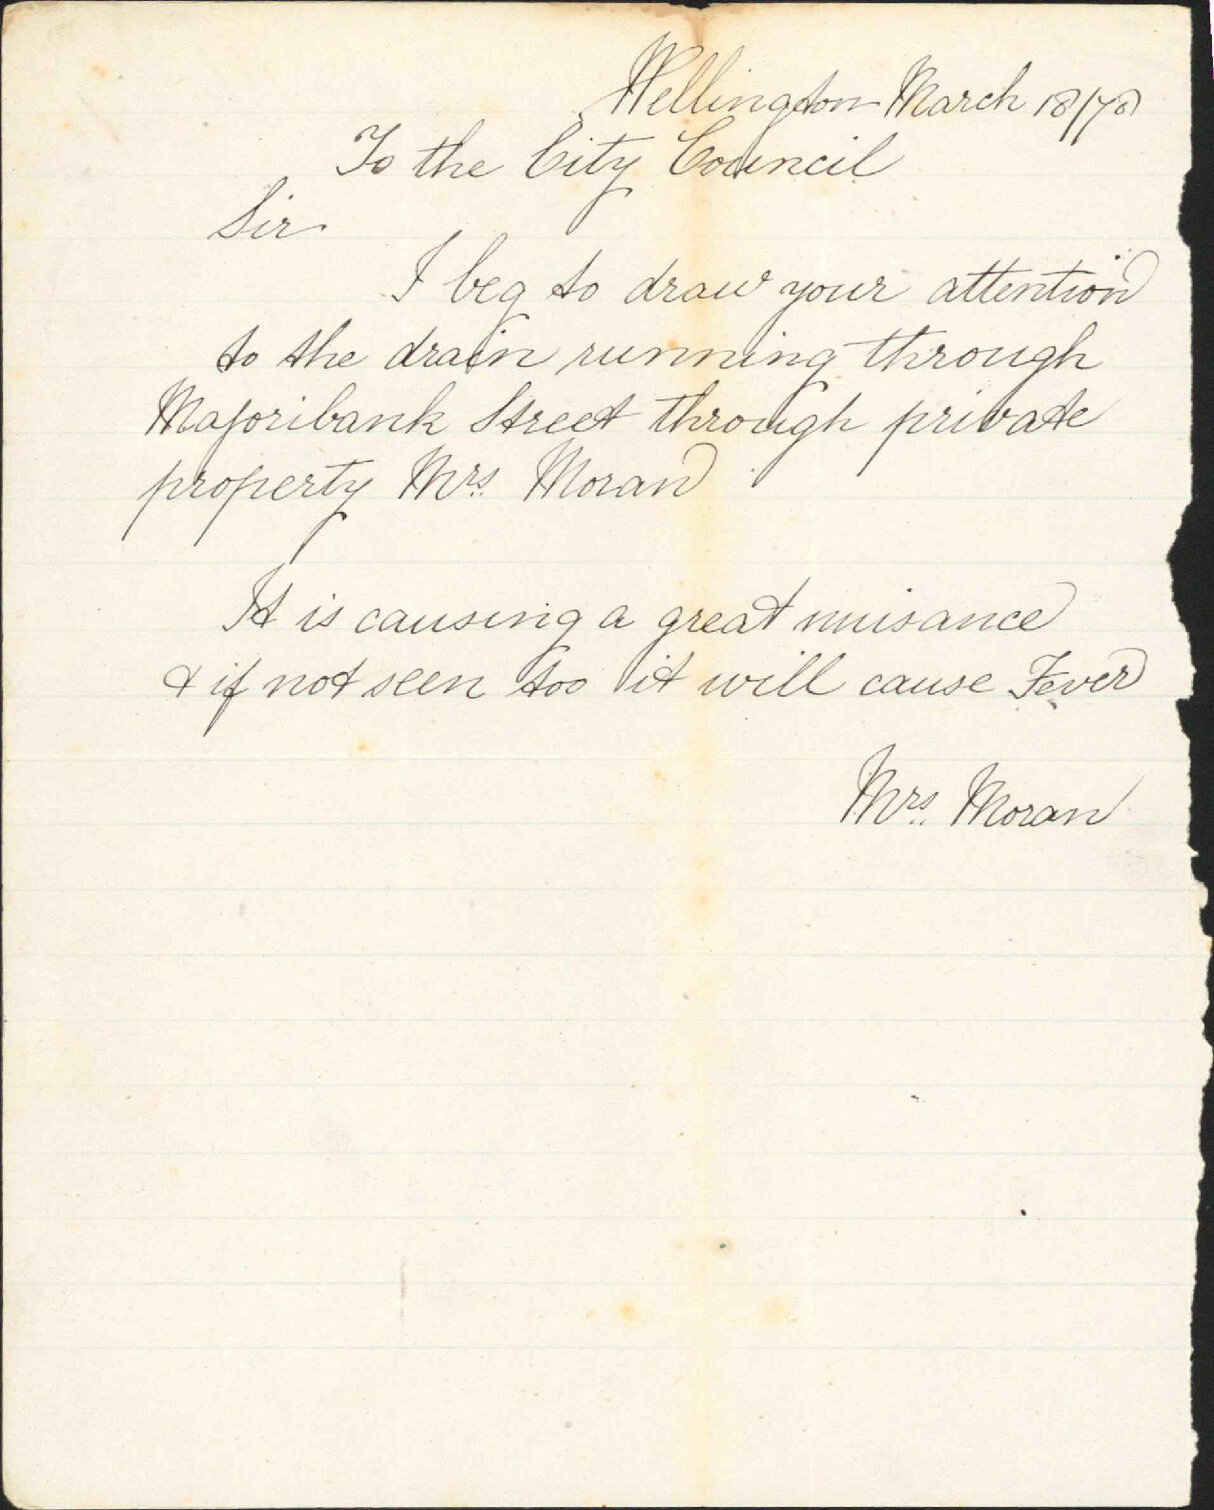 Wellington March 18/78
To the City Council
Sir
I beg to draw your attention
to the drain running through
Majoribank Street through private
property Mrs. Moran
It is causing a great nuisance
& if not seen too it will cause Fever
Mrs. Moran